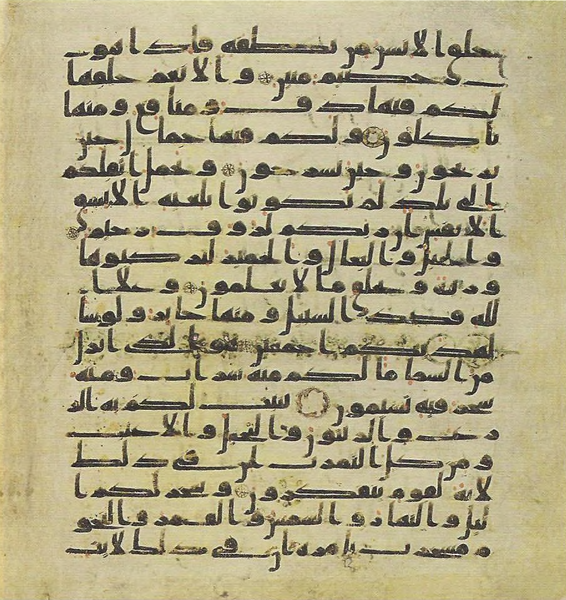 خلق الانسن من نطفه فاذا هو
خصيم مبين والانعم خلقها
لكم فيها دف ومنافع ومنها
تاكلون ولكم فيها جمال حين
تريحون وحين تسرحون وتحمل اثقلكم
الى بلد لم تكونوا بلغيه الا بشق
الانفس ان ربكم لروف رحيم
والخيل والبغال والحمير لتركبوها
وزينة ويخلق ما لا تعلمون وعلى ا
لله قصد السبيل ومنها جاير ولو شا
لهديكم اجمعين هو الذى انزل
من السما ما لكم منه شراب ومنه
شجر فيه تسيمون ينبت لكم به الز
رع والزيتون والنخيل والاعنب
ومن كل الثمرت ان فى ذلك
لاية لقوم يتفكرون وسخر لكم ا
ليل والنهار والشمس والقمر والنجو
م مسخرت بامره ان فى ذلك لايت